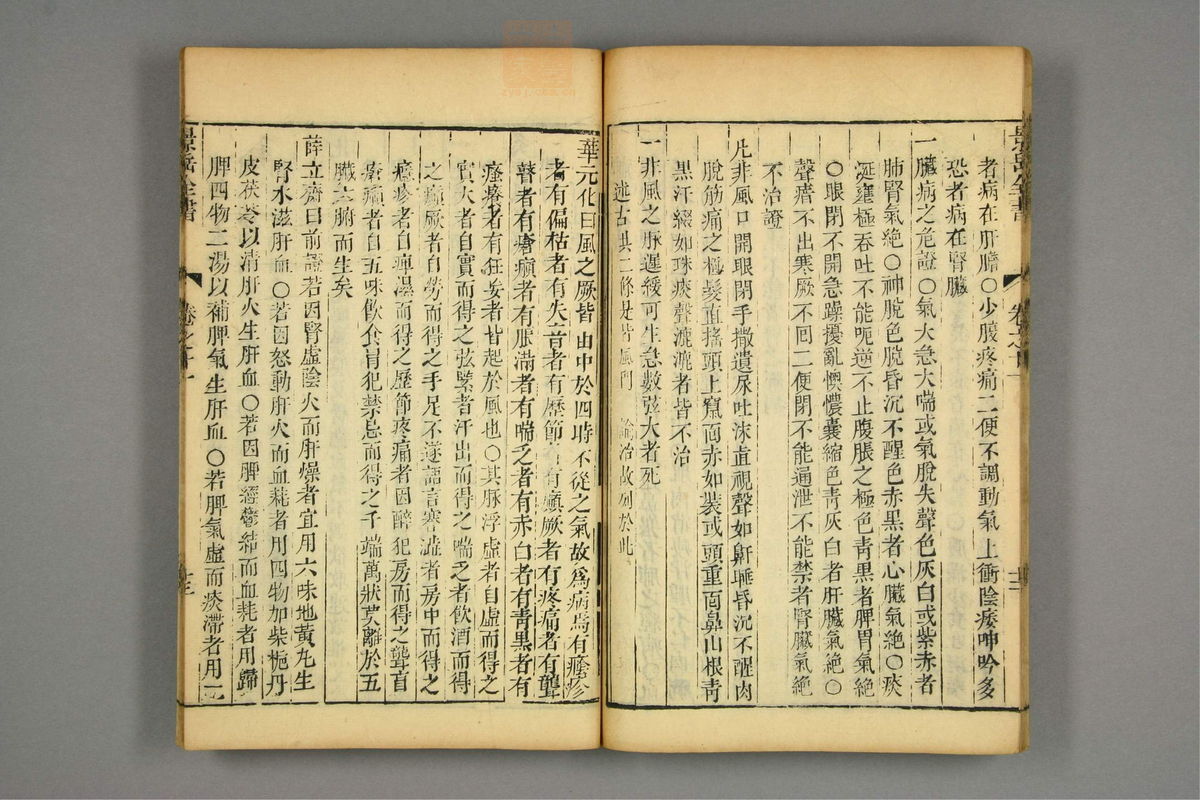 者病在肝膽○少腹疼痛二便不調動氣上衝陰痿呻吟多
恐者病在腎臟
一臟病之危證○氣大急大喘或氣脫失聲色灰白或紫赤者
肺腎氣絶○神脫色脫昏沉不醒色赤黑者心臟氣絶○痰
涎壅極吞吐不能呃逆不止腹脹之極色青黑者脾胃氣絶
○眼閉不開急躁擾亂懊憹囊縮色青灰白者肝臟氣絶○
聲瘖不出寒厥不回二便閉不能通泄不能禁者腎臟氣絶
不治證
凡非風口開眼閉手撒遺尿吐沫直視聲如鼾睡昏沉不醒肉
脫筋痛之極髮直搖頭上竄面赤如裝或頭重面鼻山根青
黑汗綴如珠痰聲漉漉者皆不治
一非風之脉遲緩可生急數弦大者死
述古共二條皆風門 論治故列於此
華元化曰風之厥皆由中於四時不從之氣故爲病焉有癮疹
者有偏枯者有失音者有歷節者有癲厥者有疼痛者有聾
瞽者有瘡癩者有脹滿者有喘乏者有赤白者有青黑者有
瘙癢者有狂妄者皆起於風也○其脉浮虛者自虛而得之
實大者自實而得之弦緊者汗出而得之喘乏者飲酒而得
之癲厥者自勞而得之手足不遂語言蹇澁者房中而得之
癮疹者自痺濕而得之歷節疼痛者因醉犯房而得之聾盲
瘡癩者自五味飲食冒犯禁忌而得之千端萬狀莫離於五
臟六腑而生矣
薛立齋曰前證若因腎虛陰火而肝燥者宜用六味地黃丸生
腎水滋肝血○若因怒動肝火而血耗者用四物加柴梔丹
皮茯苓以清肝火生肝血○若因脾經鬱結而血耗者用歸
脾四物二湯以補脾氣生肝血○若脾氣虛而痰滯者用二
景岳全書
卷之十一
十二
景岳全書
卷之十一
十三